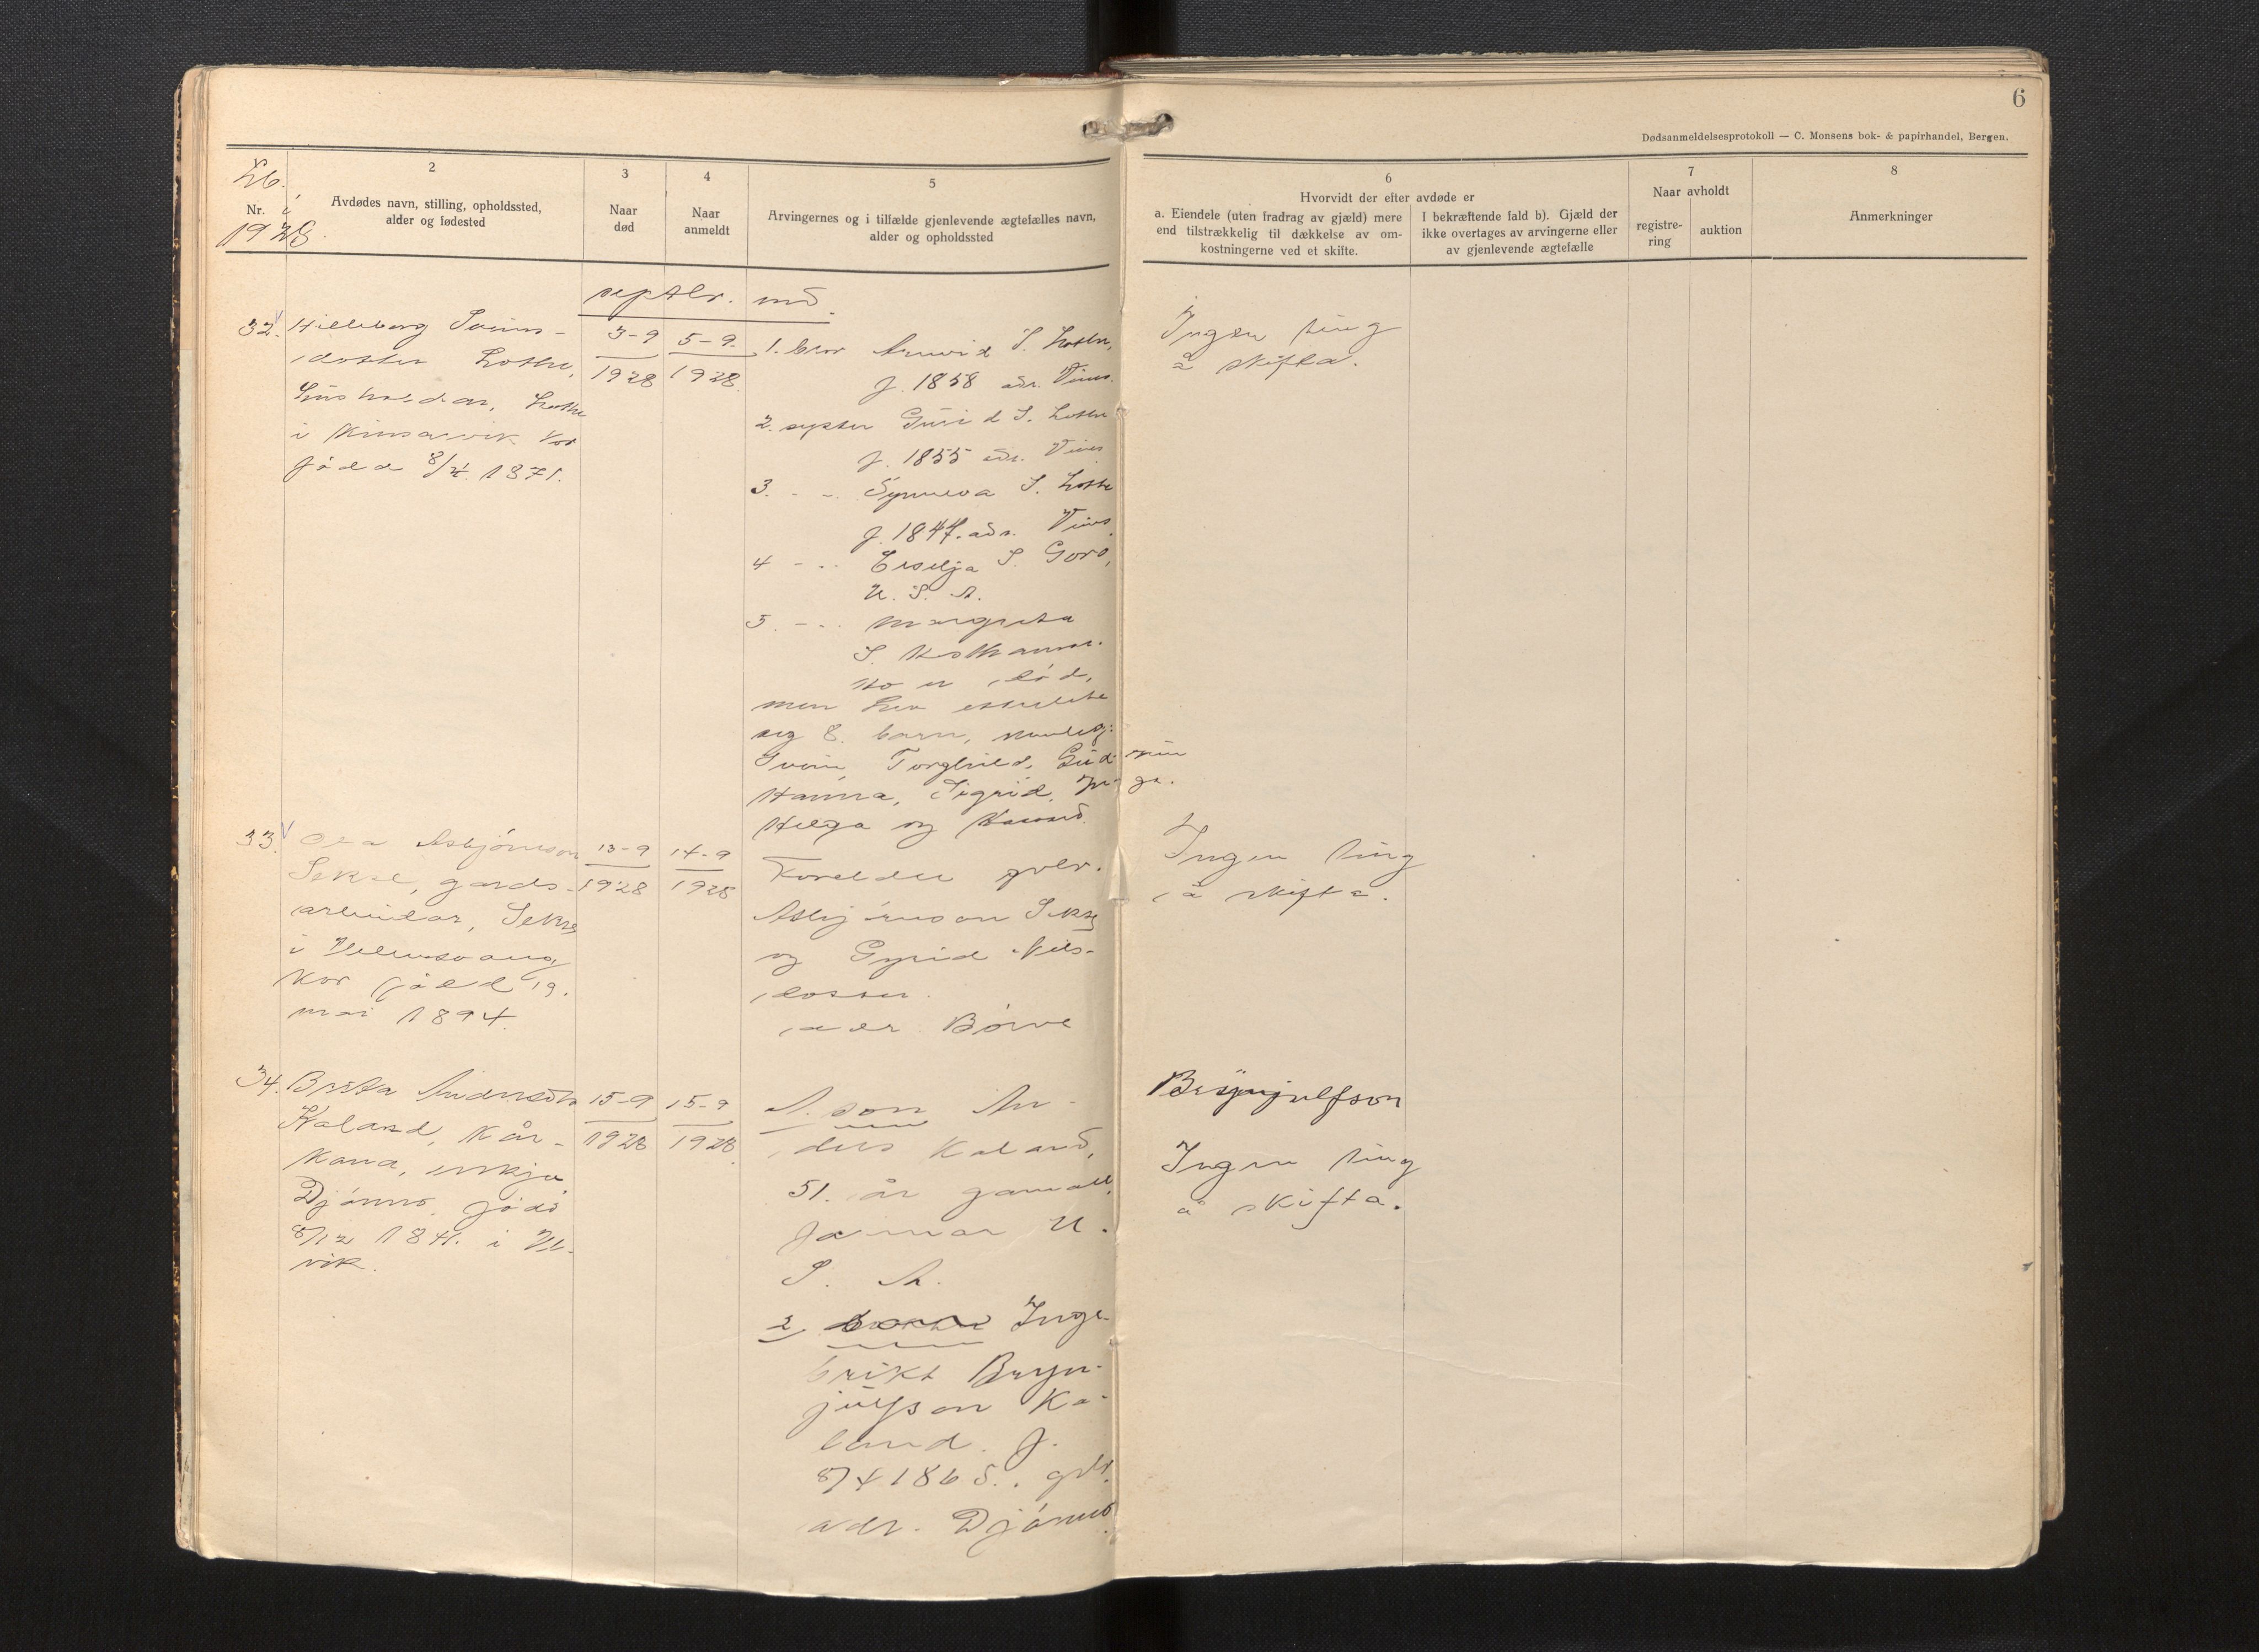 6
Dødsanmeldelsesprotokoll — C. Monsens bok- & papirhandel, Bergen.
Nr. i
1928.
2
Avdødes navn, stilling, opholdssted,
alder og fødested
3
Naar
død
4
Naar
anmeldt
5
Arvingernes og i tilfælde gjenlevende ægtefælles navn,
alder og opholdssted
6
Hvorvidt der efter avdøde er
a. Eiendele (uten fradrag av gjæld) mere
end tilstrækkelig til dækkelse av om-
kostningerne ved et skifte.
I bekræftende fald b). Gjæld der
ikke overtages av arvingerne eller
av gjenlevende ægtefælle
7
Naar avholdt
registre-
ring
auktion
8
Anmerkninger
septbr. md.
32. Hilleborg Sveins-
dotter Lothe,
Lothe
i Kinsarvik
fødd 1871.
3-9
1928
5-9
1928
1. bror S. Lothe,
f. 1858 adr.
2. syster Gurid S. Lothe
f. 1855 adr.
3. - - Synneva S. Lothe
f. 1847. adr.
4 - - S.
U. S. A.
5. - - Margreta
S.
Ho er død,
men hev etterlete
seg 8. barn,
Svein, Torghild, Gudrun
Hanna, Sigrid, Inga.
Helga og
Ingen ting
å skifta.
33. Ola Asbjørnson
Sekse, gards-
arbeidar, Sekse
i Ullensvang
fødd 19.
mai 1894.
13-9
1928
14-9
1928
Foreldre
Asbjørnson Sekse
og Gyrid Nils-
dotter.
adr Børve
Ingen ting
å skifta.
34. Brita Andersdtr
Kaland, kår-
kona, enkja
Djønno. fødd
8/12 1841. i Ul-
vik.
15-9
1928
15-9
1928
1. son An-
ders Kaland,
51. år gamall,
farmar U.
S. A.
2 Inge-
brikt Bryn-
julfson Ka-
land. f.
8/4 1865.
adr. Djønno
Brynjulfson
Ingen ting
å skifta.